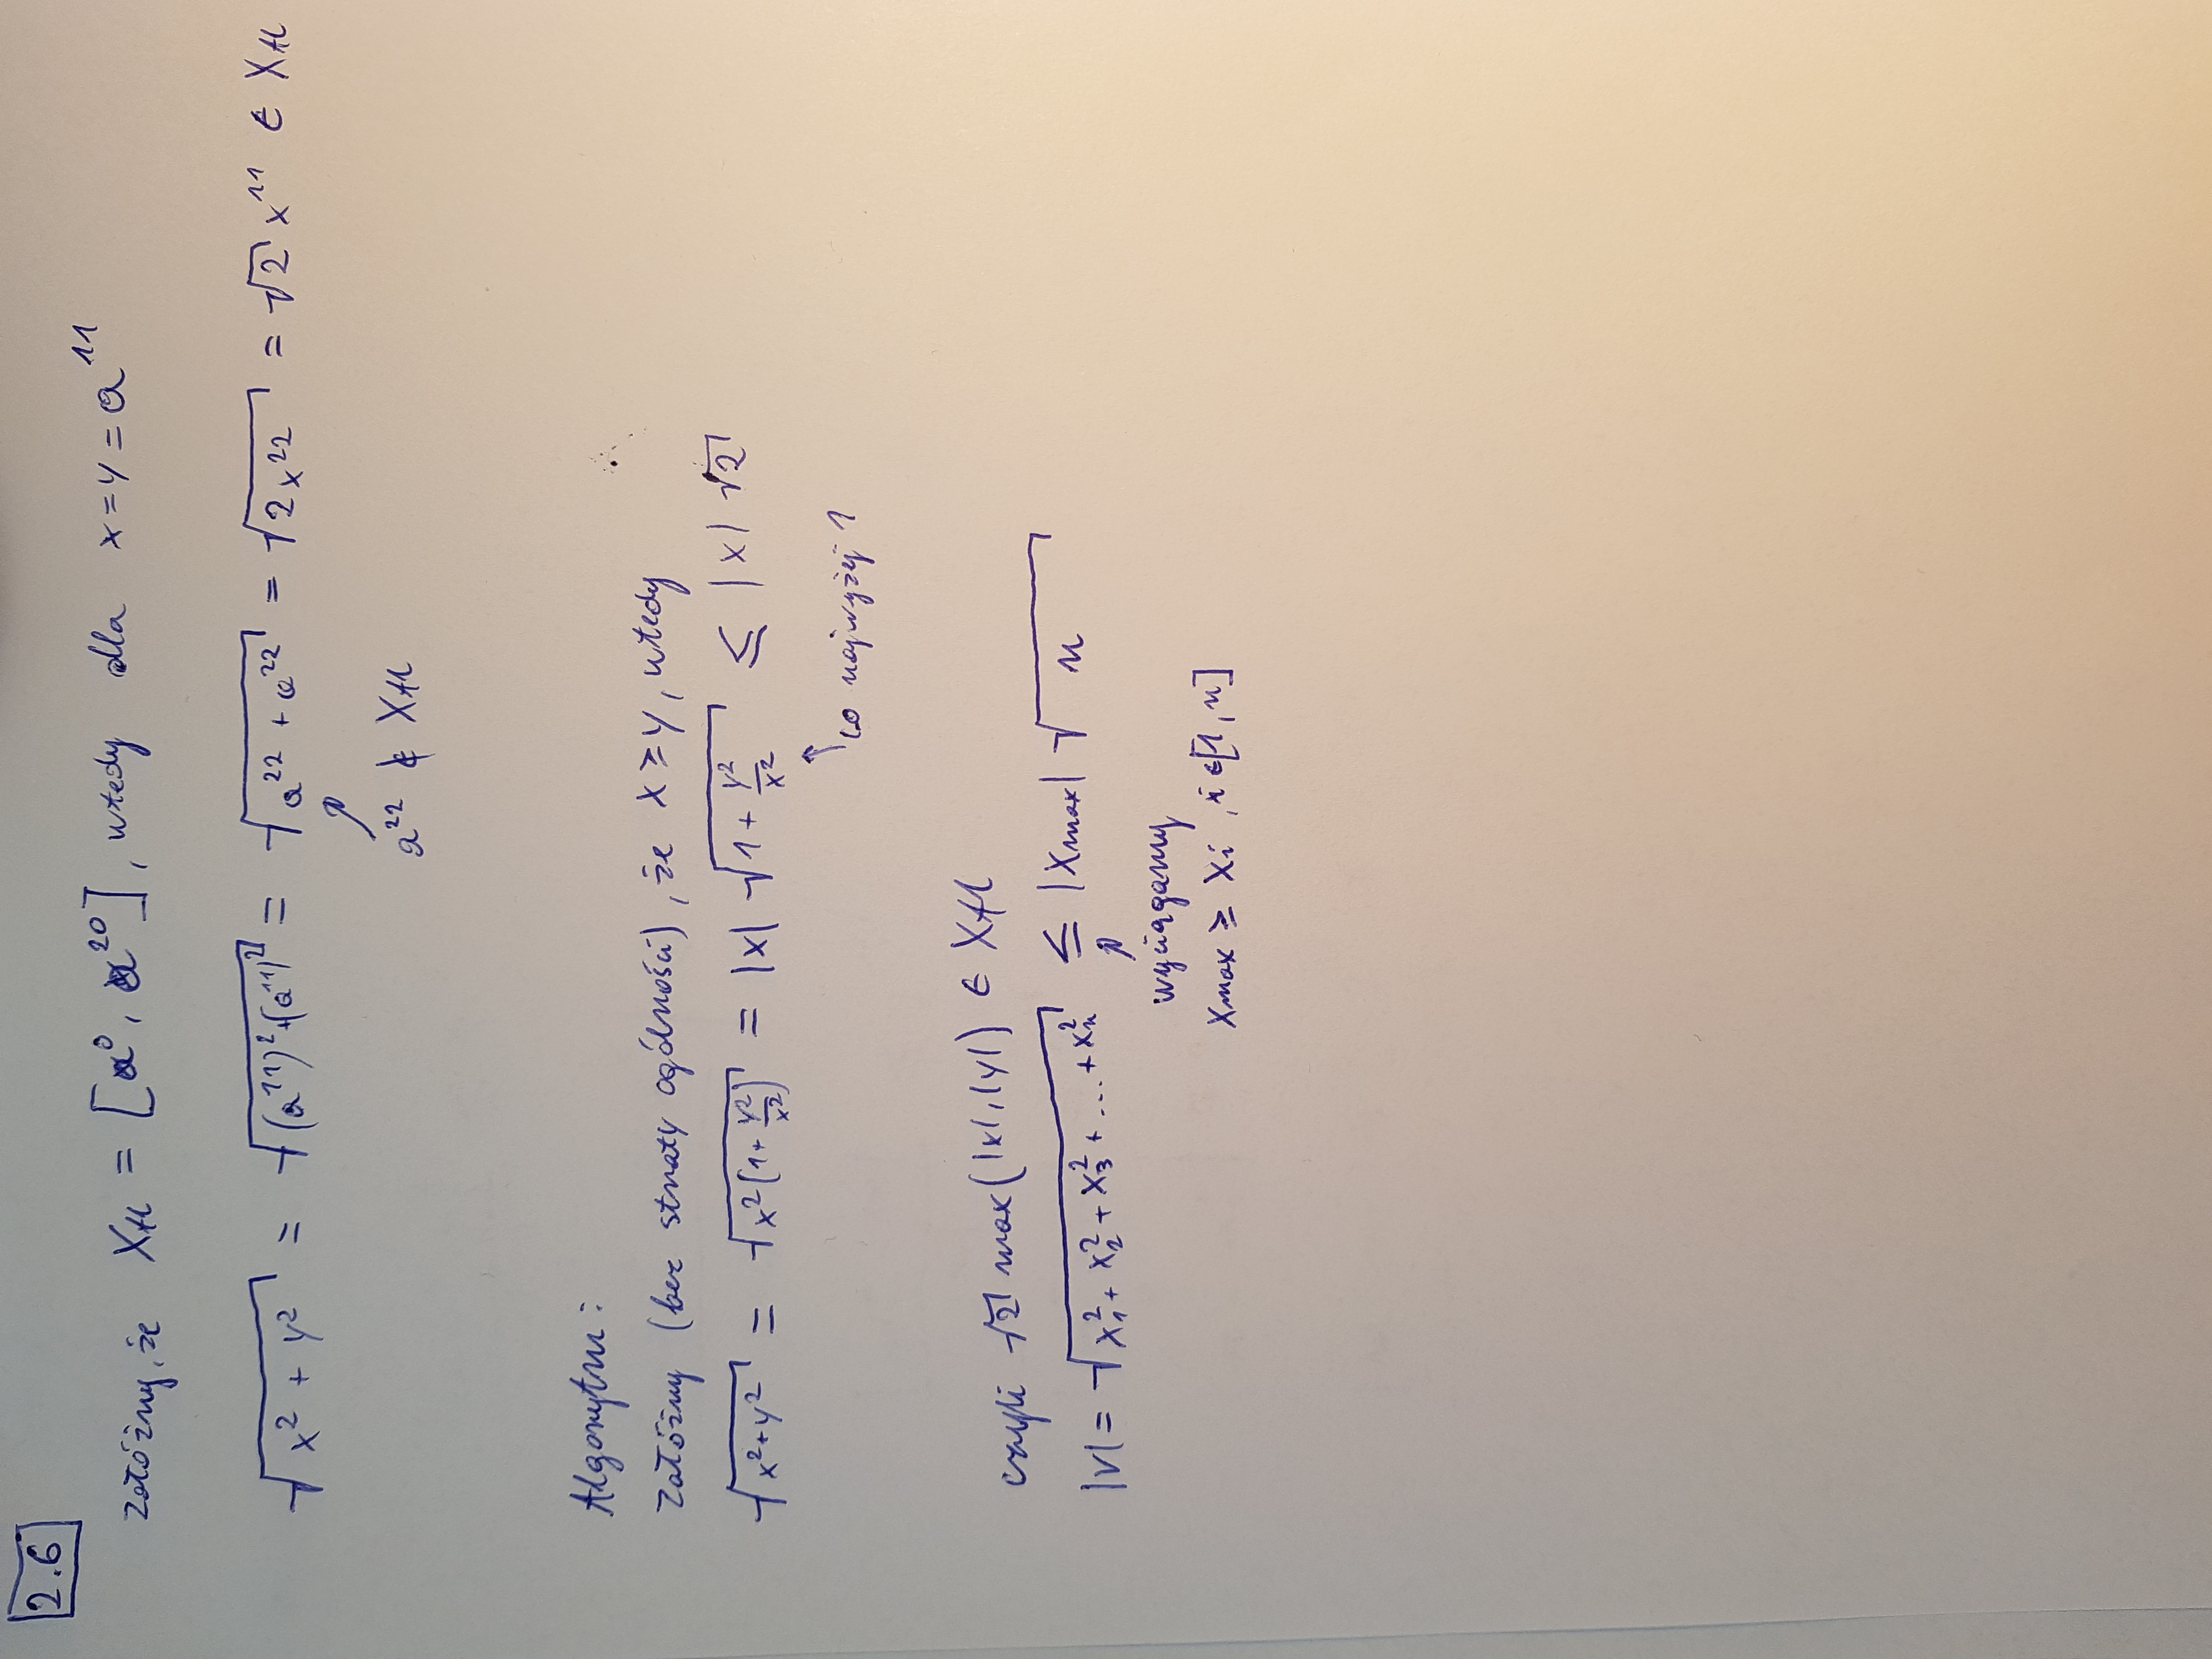 2.6
Załóżmy, że X_fl = [a⁰, a²⁰], wtedy dla x = y = a¹¹
√(x² + y²) = √((a¹¹)² + (a¹¹)²) = √(a²² + a²²) = √(2x²²) = √2 x¹¹ ∈ X_fl
a²² ∉ X_fl
Algorytm:
Załóżmy (bez straty ogólności), że x ≥ y, wtedy
√(x² + y²) = √(x²(1 + y²/x²)) = |x| √(1 + y²/x²) ≤ |x| √2
co najwyżej 1
czyli √2 max(|x|, |y|) ∈ X_fl
|v| = √(x₁² + x₂² + x₃² + ... + xₙ²) ≤ |x_max| √n
wyciągamy
x_max ≥ x_i, i ∈ [1, n]